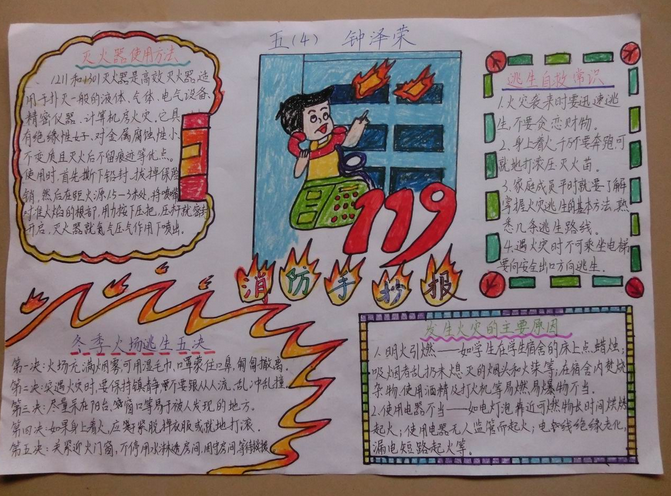 五(4) 钟泽荣
灭火器使用方法
1211和1301灭火器是高效灭火器,适
用于扑灭一般的液体、气体、电气设备、
精密仪器、计算机房火灾。它具
有绝缘性好、对金属腐蚀性小、
不变质且灭火后不留痕迹等优点。
使用时,首先撕下铅封,拔掉保险
销,然后在距火源1.5—3米处,将喷嘴
对准火焰的根部,用力按下压把,压
开启,灭火器就氮气压气作用下喷出。
119
逃生自救常识
1.火灾袭来时要迅速逃
生,不要贪恋财物。
2.身上着火,千万不要奔跑,可
就地打滚压灭火苗。
3.家庭成员平时就要了解
掌握火灾逃生的基本方法,熟
悉几条逃生路线。
4.遇火灾时不可乘坐电梯,
要向安全出口方向逃生。
消防手抄报
冬季火场逃生五决
第一决:火场充满烟雾,可用湿毛巾、口罩衣住口鼻,匍匐撤离。
第二决:突遇火灾时,要保持镇静,千万不要跟从人流、乱冲乱撞。
第三决:尽量呆在阳台、窗口等易于被人发现的地方。
第四决:如果身上着火,应赶紧脱掉衣服或就地打滚。
第五决:关紧迎火门窗,不停用水淋透房间,固守房间等待救援。
发生火灾的主要原因
1.明火引燃——如学生在学生宿舍的床上点蜡烛;
吸烟者乱扔未熄灭的烟头和火柴等,在宿舍内焚烧
杂物、使用酒精及打火机等易燃、易爆物不当。
2.使用电器不当——如电灯泡靠近可燃物长时间烘烤
起火;使用电器无人监管而起火;电器线绝缘老化,
漏电短路起火等。